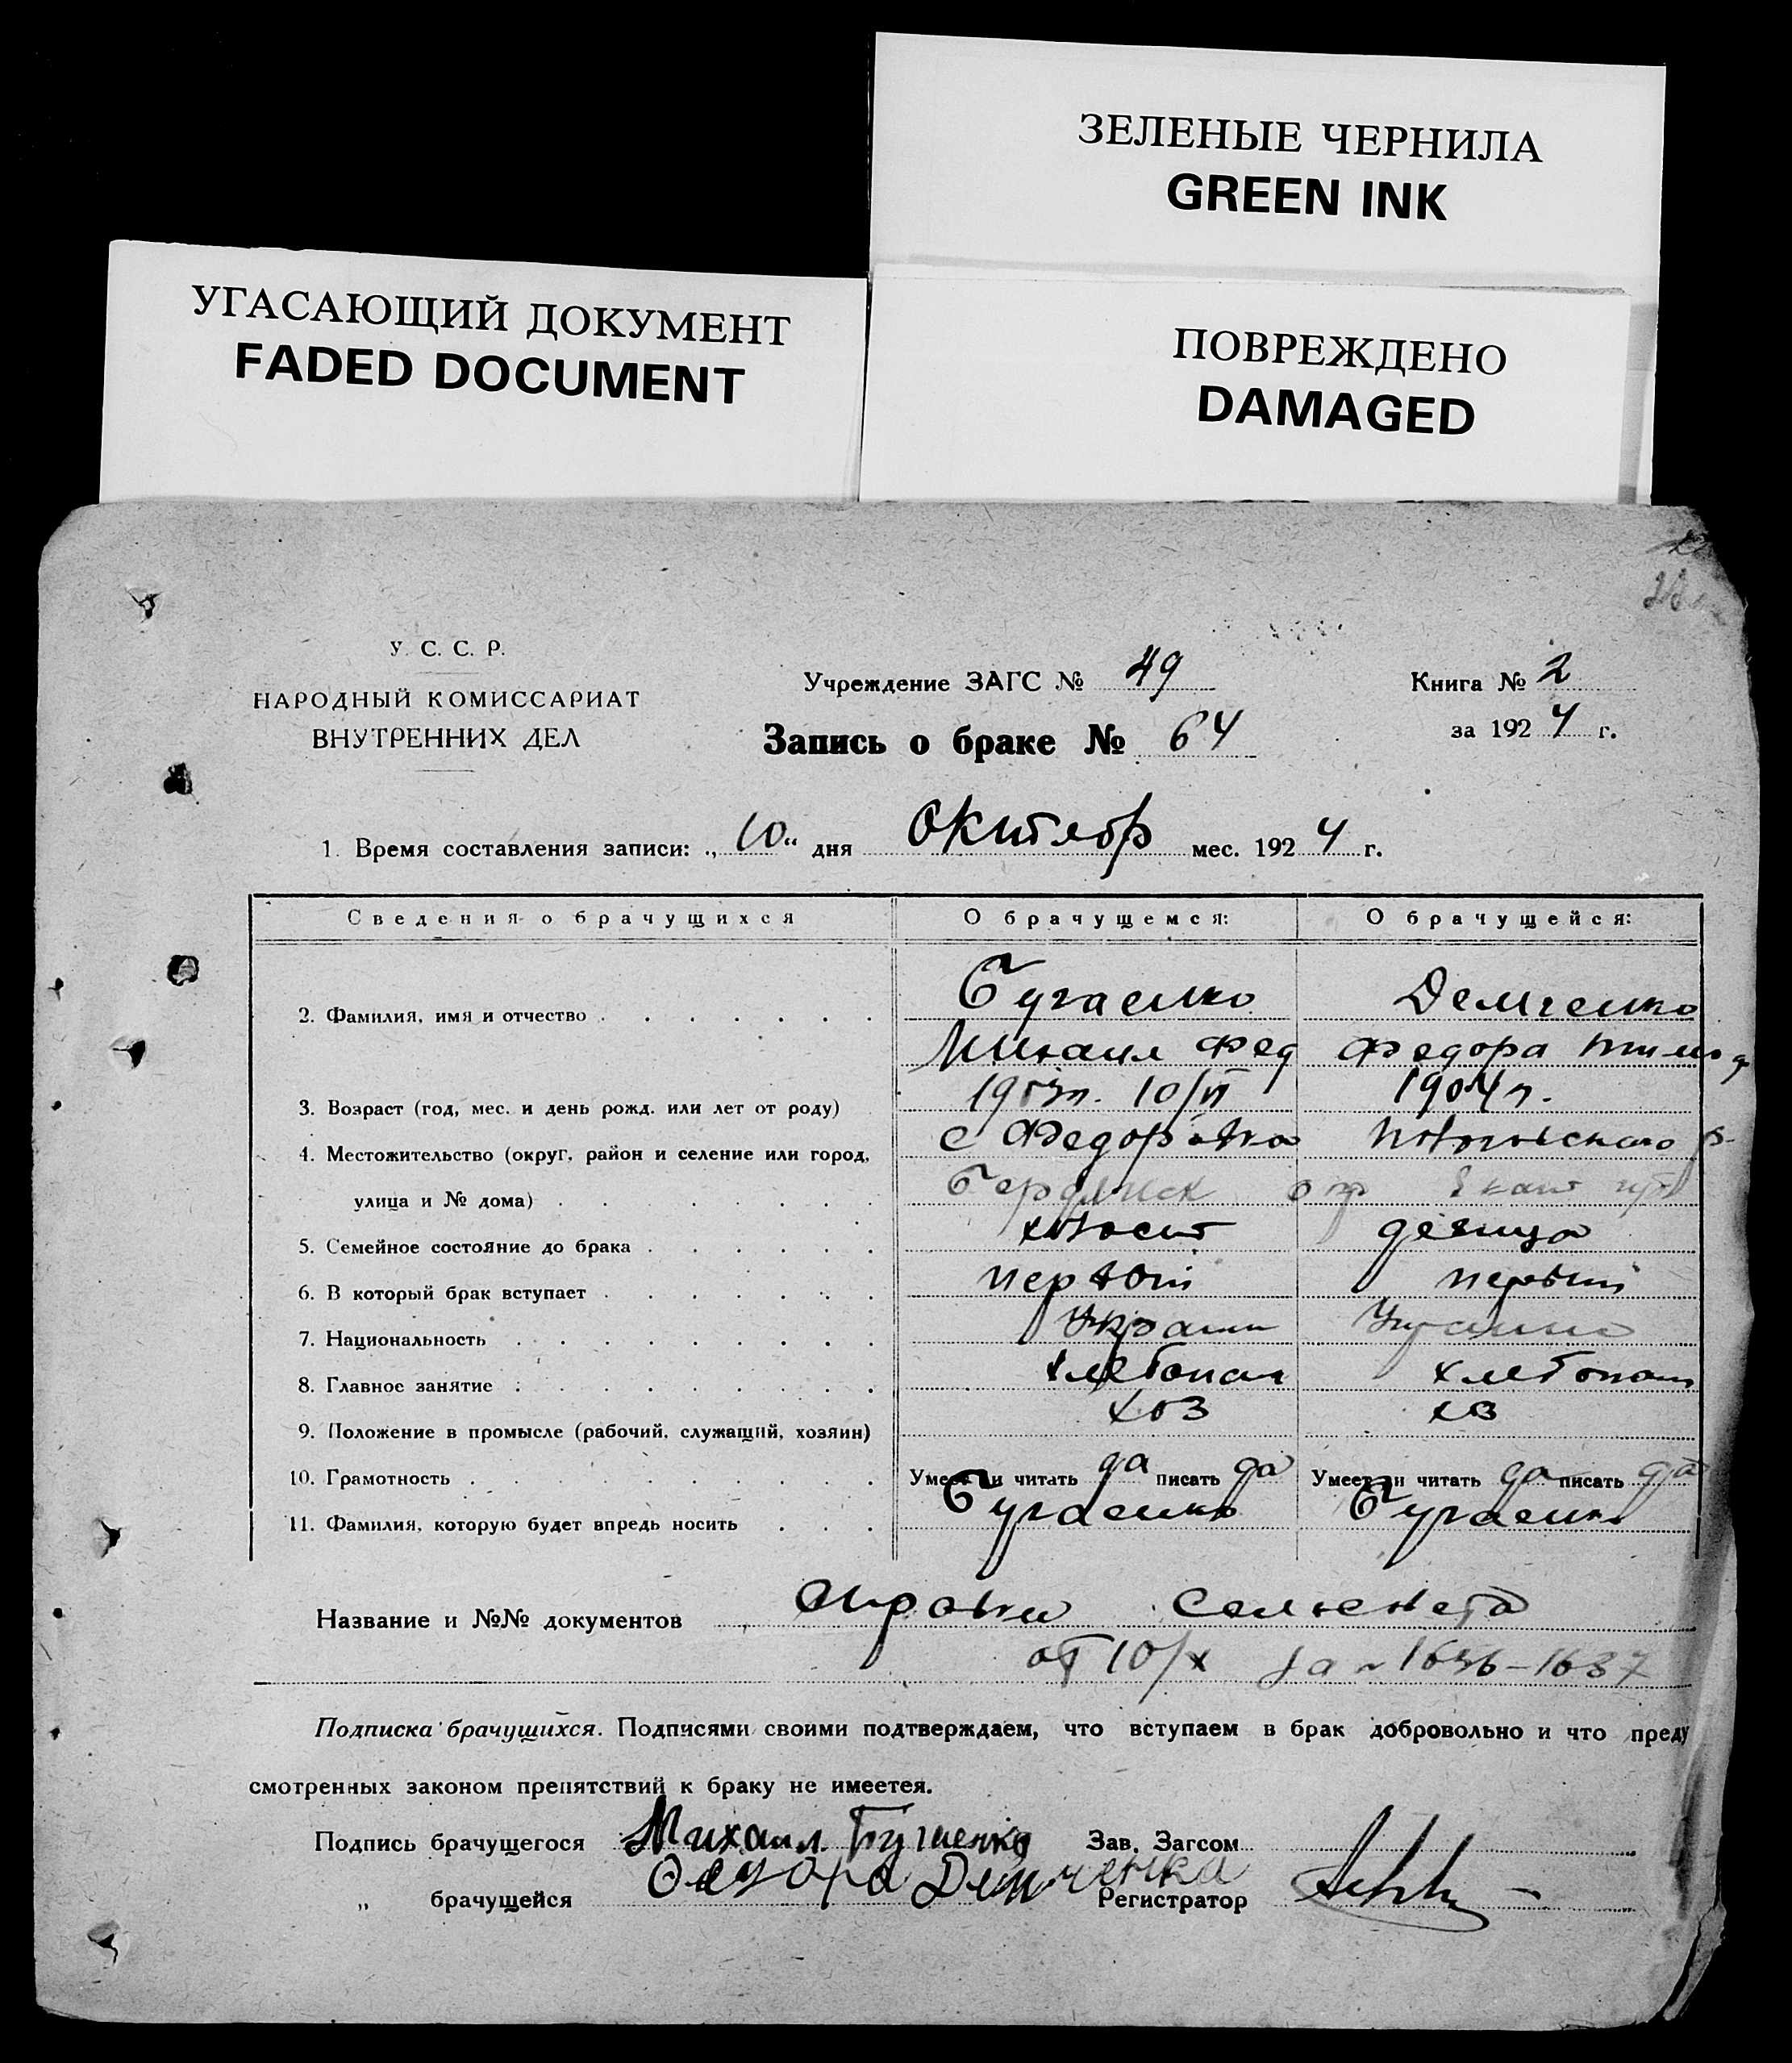 ЗЕЛЕНЫЕ ЧЕРНИЛА
GREEN INK
УГАСАЮЩИЙ ДОКУМЕНТ
FADED DOCUMENT
ПОВРЕЖДЕНО
DAMAGED
У. С. С. Р.
НАРОДНЫЙ КОМИССАРИАТ
ВНУТРЕННИХ ДЕЛ
Учреждение ЗАГС № 49
Книга № 2
Запись о браке № 64
за 1924 г.
1. Время составления записи: „10“ дня октябр мес. 1924 г.
Сведения о брачущихся О брачущемся: О брачущейся:
2. Фамилия, имя и отчество Бугаенко Демченко
Михаил Фед Федора
3. Возраст (год, мес. и день рожд. или лет от роду) 1903г. 10/VI 1904г.
4. Местожительство (округ, район и селение или город, с Федоровка
улица и № дома) Бердянск окр Екат губ
5. Семейное состояние до брака холост девица
6. В который брак вступает первый первый
7. Национальность Украин Украин
8. Главное занятие хлебопаш хлебопаш
9. Положение в промысле (рабочий, служащий, хозяин) хоз хоз
10. Грамотность Умеет ли читать да писать да Умеет ли читать да писать да
11. Фамилия, которую будет впредь носить Бугаенко Бугаенко
Название и №№ документов справки сельсовета
от 10/X за № 1636-1637
Подписка брачущихся. Подписями своими подтверждаем, что вступаем в брак добровольно и что преду
смотренных законом препятствий к браку не имеетея.
Подпись брачущегося Михаил Бугаенко Зав. Загсом
„ брачущейся Федора Демченка Регистратор